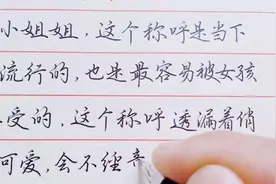 小姐姐，这个称呼是当下
流行的，也是最容易被女孩
受的，这个称呼透漏着俏
可爱，会不经意